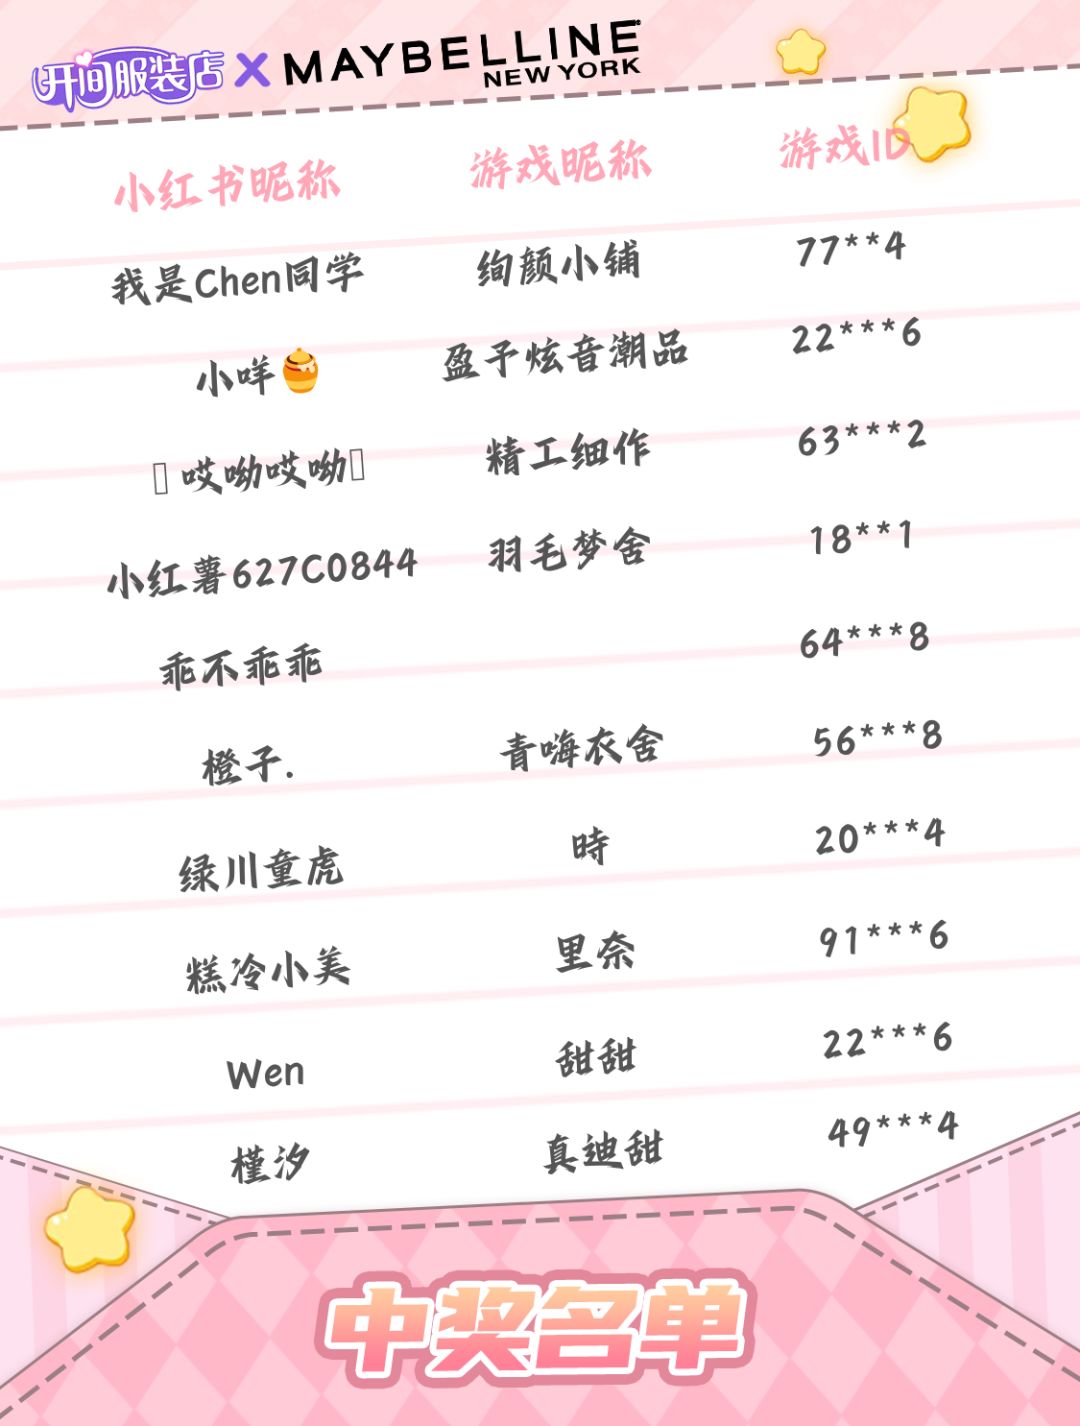 开间服装店 X MAYBELLINE
NEW YORK
小红书昵称 游戏昵称 游戏ID
我是Chen同学 绚颜小铺 77**4
小咩🍯 盈予炫音潮品 22***6
哎呦哎呦 精工细作 63***2
小红薯627C0844 羽毛梦舍 18**1
乖不乖乖 64***8
橙子. 青嗨衣舍 56***8
绿川童虎 時 20***4
糕冷小美 里奈 91***6
Wen 甜甜 22***6
槿汐 真迪甜 49***4
中奖名单